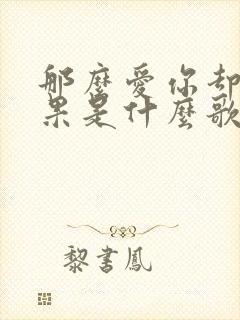 那麼愛你却
果是什麼歌
黎書鳳